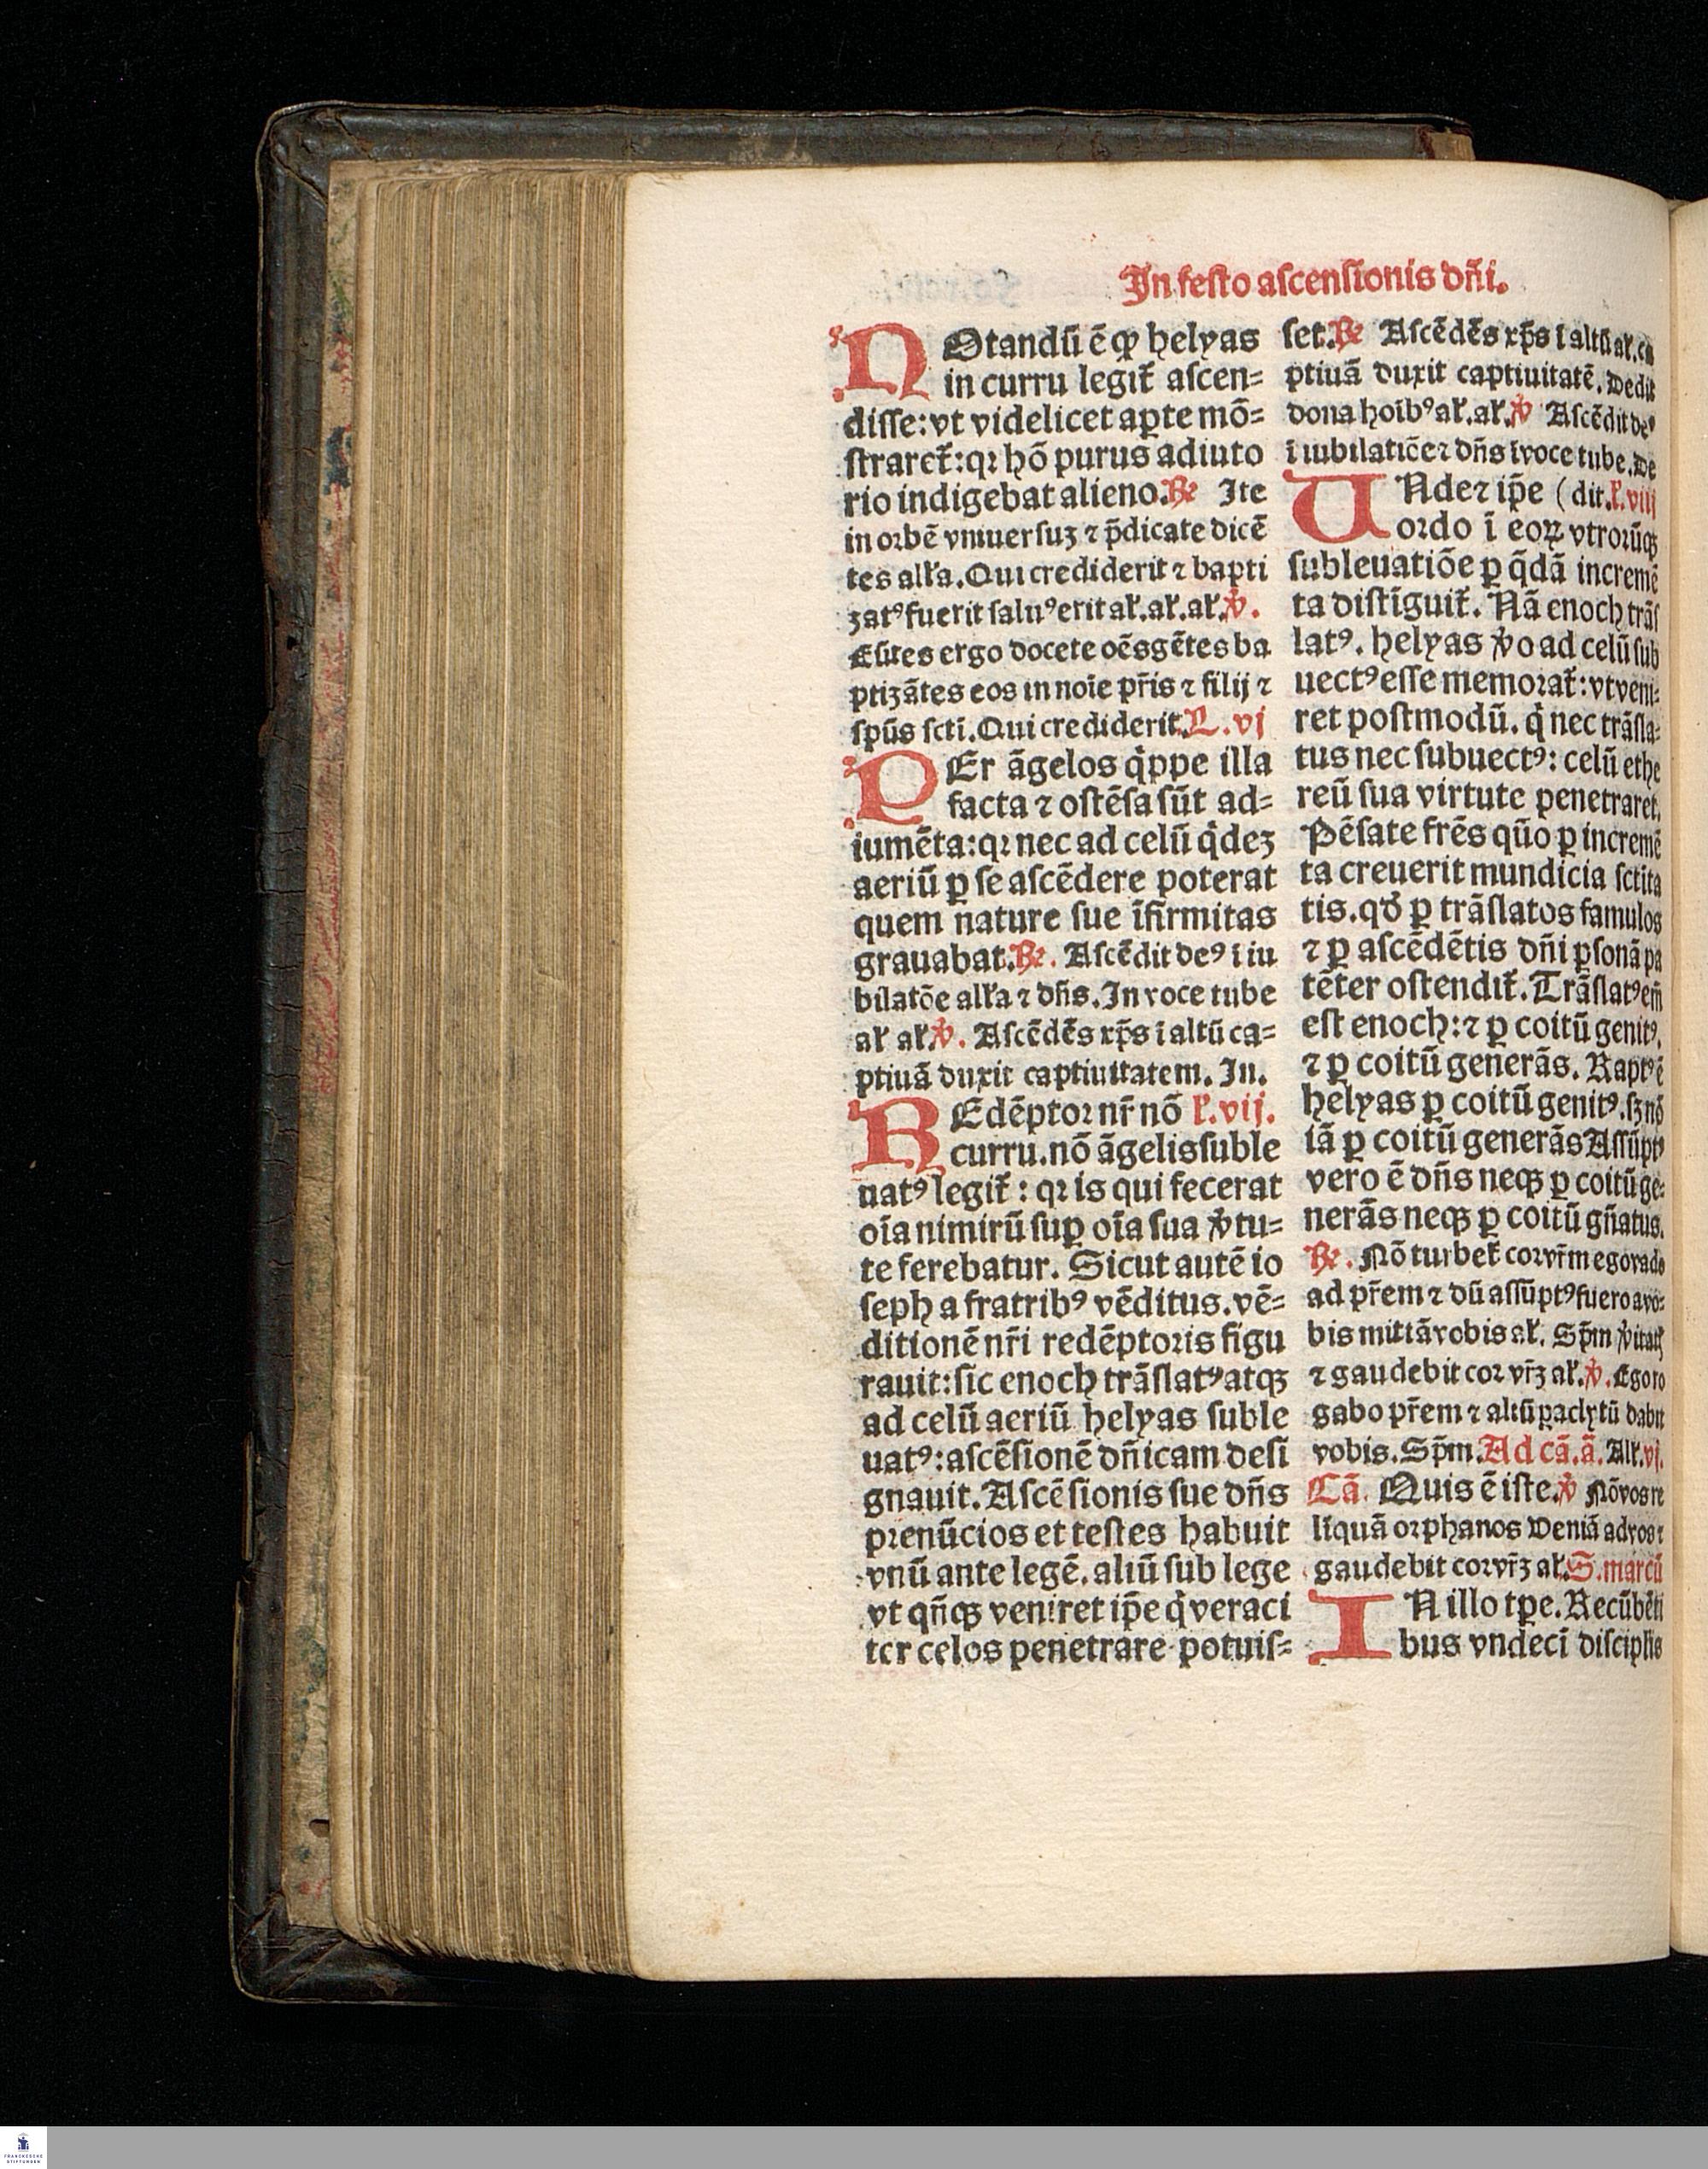 In feſto aſcenſionis dn̄i.
NOtandū ē ꝙ helyas
in curru legit̄ aſcen⸗
diſſe: vt videlicet apte mō⸗
ſtraret̄: qꝛ hō purus adiuto
rio indigebat alieno. ℟ Ite
in orbē vniuerſuʒ ⁊ p̄dicate dicē
tes alľa. Qui crediderit ⁊ bapti
zatꝰ fuerit ſaluꝰ erit aľ. aľ. aľ. ℣.
Eūtes ergo docete oēs gētes ba
ptizātes eos in noīe pr̄is ⁊ filij ⁊
ſpūs ſcti. Qui crediderit. L. vj
PEr āgelos q̇ppe illa
facta ⁊ oſtēſa ſūt ad⸗
iumēta: qꝛ nec ad celū q̇deʒ
aeriū ꝑ ſe aſcēdere poterat
quem nature ſue īfirmitas
grauabat. ℟. Aſcēdit deꝰ i iu
bilatōe alľa ⁊ dn̄s. In voce tube
aľ aľ ℣. Aſcēdēs xp̄s i altū ca⸗
ptiuā duxit captiuitatem. In.
REdēptoꝛ nr̄ nō ľ. vij.
curru. nō āgelis ſuble
uatꝰ legit̄: qꝛ is qui fecerat
oīa nimirū ſuꝑ oīa ſua v̓tu⸗
te ferebatur. Sicut autē io
ſeph a fratribꝰ vēditus. vē⸗
ditionē nr̄i redēptoꝛis figu
rauit: ſic enoch trāſlatꝰ atqꝫ
ad celū aeriū helyas ſuble
uatꝰ: aſcēſionē dn̄icam deſi
gnauit. Aſcēſionis ſue dn̄s
pꝛenūcios et teſtes habuit
vnū ante legē. aliū ſub lege
vt qn̄qꝫ veniret ip̄e q̇ veraci
ter celos penetrare potuiſ⸗
ſet. ℟ Aſcēdēs xp̄s i altū aľ. ca
ptiuā duxit captiuitatē. Dedit
dona hoībꝰ aľ. aľ. ℣ Aſcēdit deꝰ
i iubilatiōe ⁊ dn̄s ī voce tube. De
UNde ⁊ ip̄e (dit. ľ. viij
oꝛdo ī eoꝝ vtroꝛūqꝫ
ſubleuatiōe ꝑ q̄dā incremē
ta diſtīguit̄. Nā enoch trāſ
latꝰ. helyas v̓o ad celū ſub
uectꝰ eſſe memoꝛat̄: vt veni⸗
ret poſtmodū. q̇ nec trāſla⸗
tus nec ſubuectꝰ: celū ethe
reū ſua virtute penetraret.
Pēſate frēs quō ꝑ incremē
ta creuerit mundicia ſctita
tis. qď ꝑ trāſlatos famulos
⁊ ꝑ aſcēdētis dn̄i ꝑſonā pa
tēter oſtendit̄. Trāſlatꝰ em̄
eſt enoch: ⁊ ꝑ coitū genitꝰ.
⁊ ꝑ coitū generās. Raptꝰ ē
helyas ꝑ coitū genitꝰ. ſꝫ nō
iā ꝑ coitū generās Aſſūptꝰ
vero ē dn̄s neqꝫ ꝑ coitū ge⸗
nerās neqꝫ ꝑ coitū gn̄atus.
℟. Nō turbet̄ coꝛ vr̄m ego vado
ad pr̄em ⁊ dū aſſūptꝰ fuero a vo⸗
bis mittā vobis aľ. Sp̄m v̓itatꝭ
⁊ gaudebit coꝛ vr̄ʒ aľ. ℣. Ego ro
gabo pr̄em ⁊ aliū ꝑaclytū dabit
vobis. Sp̄m. Ad cā. ā. Alľ. vj.
Cā. Quis ē iſte. ℣ Nō vos re
līquā oꝛphanos Veniā ad vos ⁊
gaudebit coꝛ vr̄ʒ aľ. S. marcū
IN illo tp̄e. Recūbēti
bus vndecī diſciplis
FRANCKESCHE
STIFTUNGEN